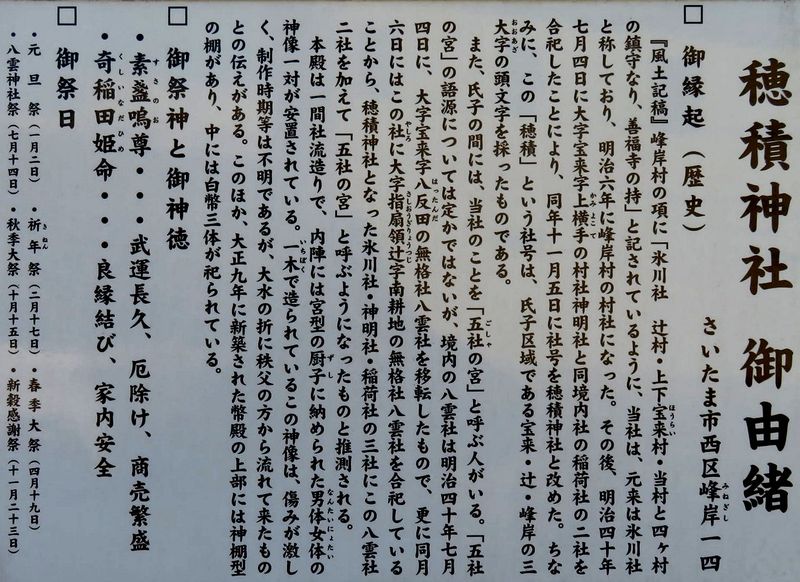 穂積神社 御由緒
さいたま市西区峰岸一四
□ 御縁起（歴史）
『風土記稿』峰岸村の項に「氷川社 辻村・上下宝来村・当村と四ヶ村
の鎮守なり、善福寺の持」と記されているように、当社は、元来は氷川社
と称しており、明治六年に峰岸村の村社になった。その後、明治四十年
七月四日に大字宝来字上横手の村社神明社と同境内社の稲荷社の二社を
合祀したことにより、同年十一月五日に社号を穂積神社と改めた。ちな
みに、この「穂積」という社号は、氏子区域である宝来・辻・峰岸の三
大字の頭文字を採ったものである。
また、氏子の間には、当社のことを「五社の宮」と呼ぶ人がいる。「五社
の宮」の語源については定かではないが、境内の八雲社は明治四十年七月
四日に、大字宝来字八反田の無格社八雲社を移転したもので、更に同月
六日にはこの社に大字指扇領辻字南耕地の無格社八雲社を合祀している
ことから、穂積神社となった氷川社・神明社・稲荷社の三社にこの八雲社
二社を加えて「五社の宮」と呼ぶようになったものと推測される。
本殿は一間社流造りで、内陣には宮型の厨子に納められた男体女体の
神像一対が安置されている。一木で造られているこの神像は、傷みが激し
く、制作時期等は不明であるが、大水の折に秩父の方から流れて来たもの
との伝えがある。このほか、大正九年に新築された幣殿の上部には神棚型
の棚があり、中には白幣三体が祀られている。
□ 御祭神と御神徳
・素盞嗚尊・・・武運長久、厄除け、商売繁盛
・奇稲田姫命・・・良縁結び、家内安全
□ 御祭日
・元旦祭（一月一日）・祈年祭（二月十七日）・春季大祭（四月十九日）
・八雲神社祭（七月十四日）・秋季大祭（十月十五日）・新穀感謝祭（十一月二十三日）